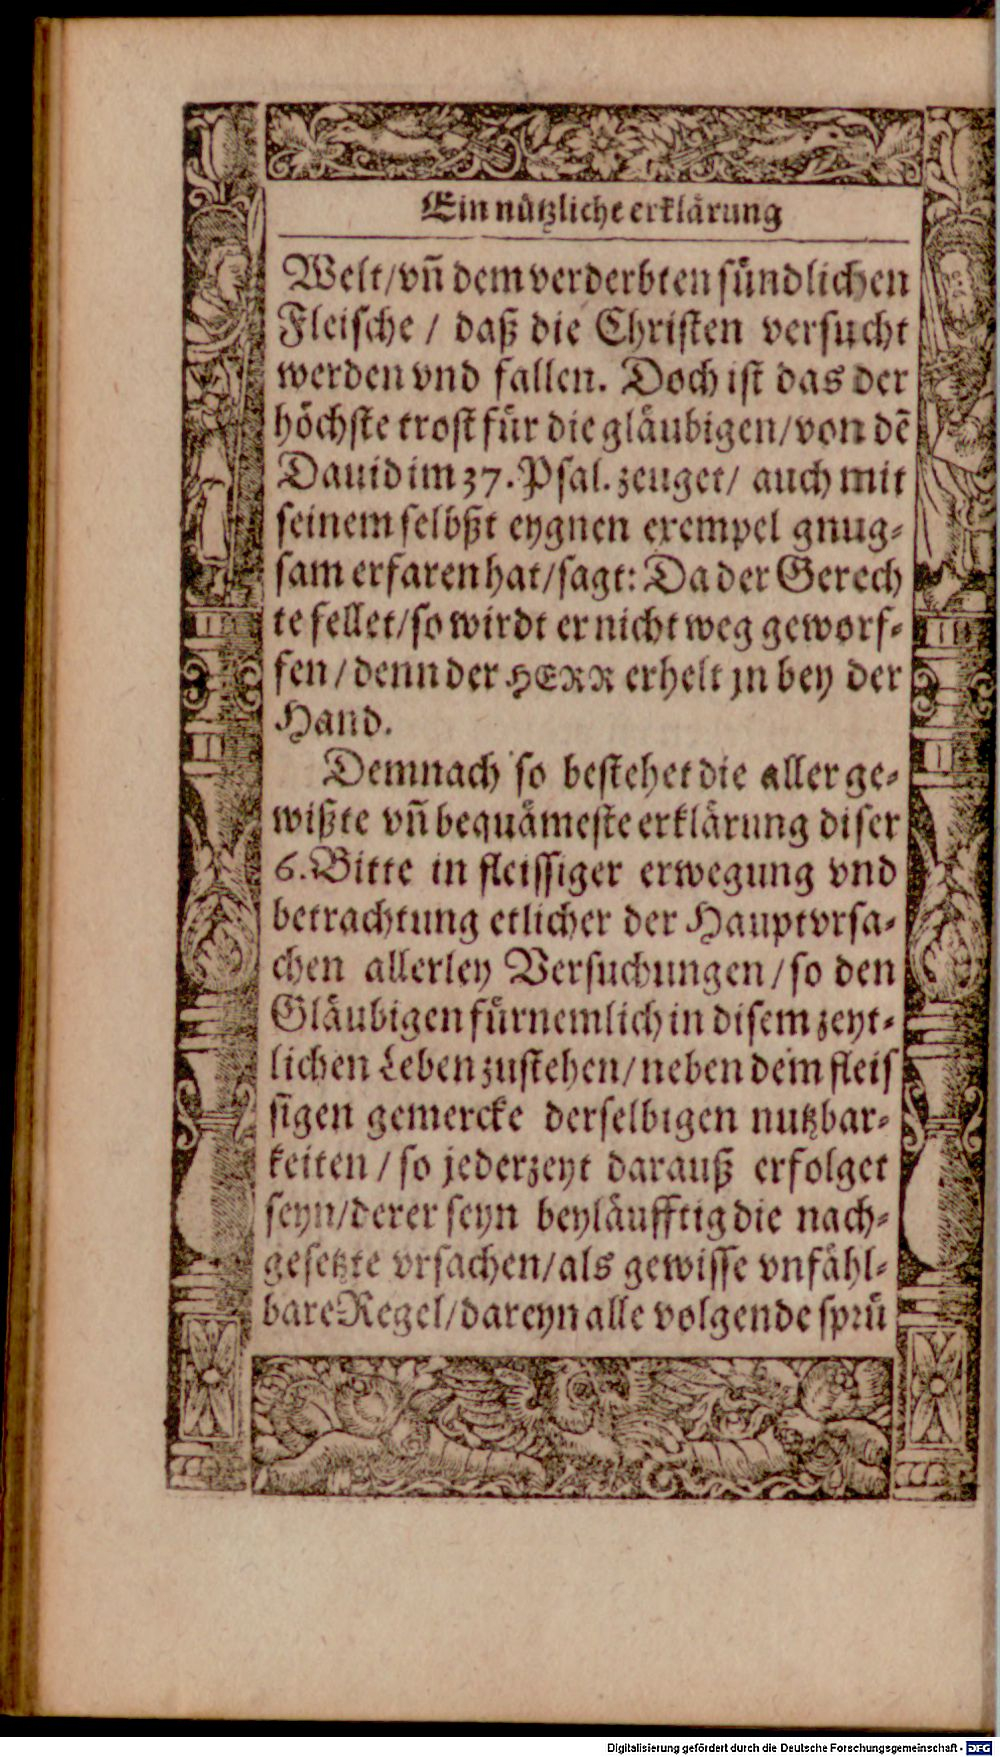 Ein nützliche erklärung
Welt/ vnd̄ dem verderbten sündlichen
Fleische / daß die Christen versucht
werden vnd fallen. Doch ist das der
höchste trost für die gläubigen/ von dē
Dauid im 37. Psal. zeuget/ auch mit
seinem selbßt eygnen exempel gnug-
sam erfaren hat/ sagt: Da der Gerech
te fellet/ so wirdt er nicht weg geworf-
fen / denn der HERR erhelt jn bey der
Hand.
Demnach so bestehet die aller ge-
wißte vn̄ bequämeste erklärung diser
6. Bitte in fleissiger erwegung vnd
betrachtung etlicher der Hauptvrsa-
chen allerley Versuchungen / so den
Gläubigen fürnemlich in disem zeyt-
lichen Leben zustehen/ neben dem fleis
sigen gemercke derselbigen nutzbar-
keiten / so jederzeyt darauß erfolget
seyn/ derer seyn beyläufftig die nach-
gesetzte vrsachen/ als gewisse vnfähl-
bare Regel/ dareyn alle volgende sprü
Digitalisierung gefördert durch die Deutsche Forschungsgemeinschaft - DFG